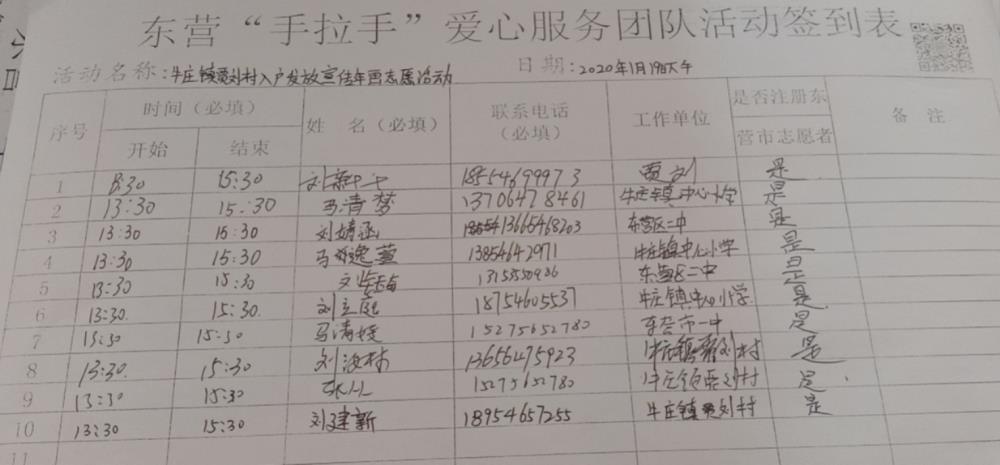 东营“手拉手”爱心服务团队活动签到表
活动名称:牛庄镇 刘村入户发放宣传年画志愿活动 日期:2020年1月19日下午
序号 时间(必填) 姓 名(必填) 联系电话(必填) 工作单位 是否注册东营市志愿者 备 注
开始 结束
1 13:30 15:30 刘 18554699973 贾刘 是
2 13:30 15:30 马清梦 13706478461 牛庄镇中心小学 是
3 13:30 15:30 刘婧涵 13665468203 东营区二中 是
4 13:30 15:30 马 逸萱 13854642971 牛庄镇中心小学 是
5 13:30 15:30 东营区二中 是
6 13:30 15:30 刘立 18754605537 牛庄镇中心小学 是
7 13:30 15:30 马清媛 15275652780 东营市一中 是
8 13:30 15:30 刘汝林 13656475923 牛庄镇 刘村 是
9 13:30 15:30 15275652780 牛庄镇 刘村 是
10 13:30 15:30 刘建新 18954657255 牛庄镇 刘村 是
11